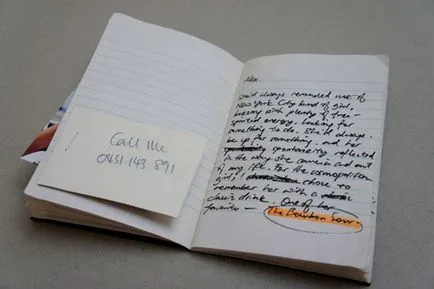 Call Me
0451 143 891
Alex.
She'd always reminded me of
New York City kind of girl,
buzzing with plenty of free-
spirited energy, looking for
something to do. She'd always
be up for something, and her
spontaneity reflected
in the way she came in and out
of my life. For the cosmopolitan
girl, I chose to
remember her with a
classic drink. One of her
favourites –
The Bourbon Sour